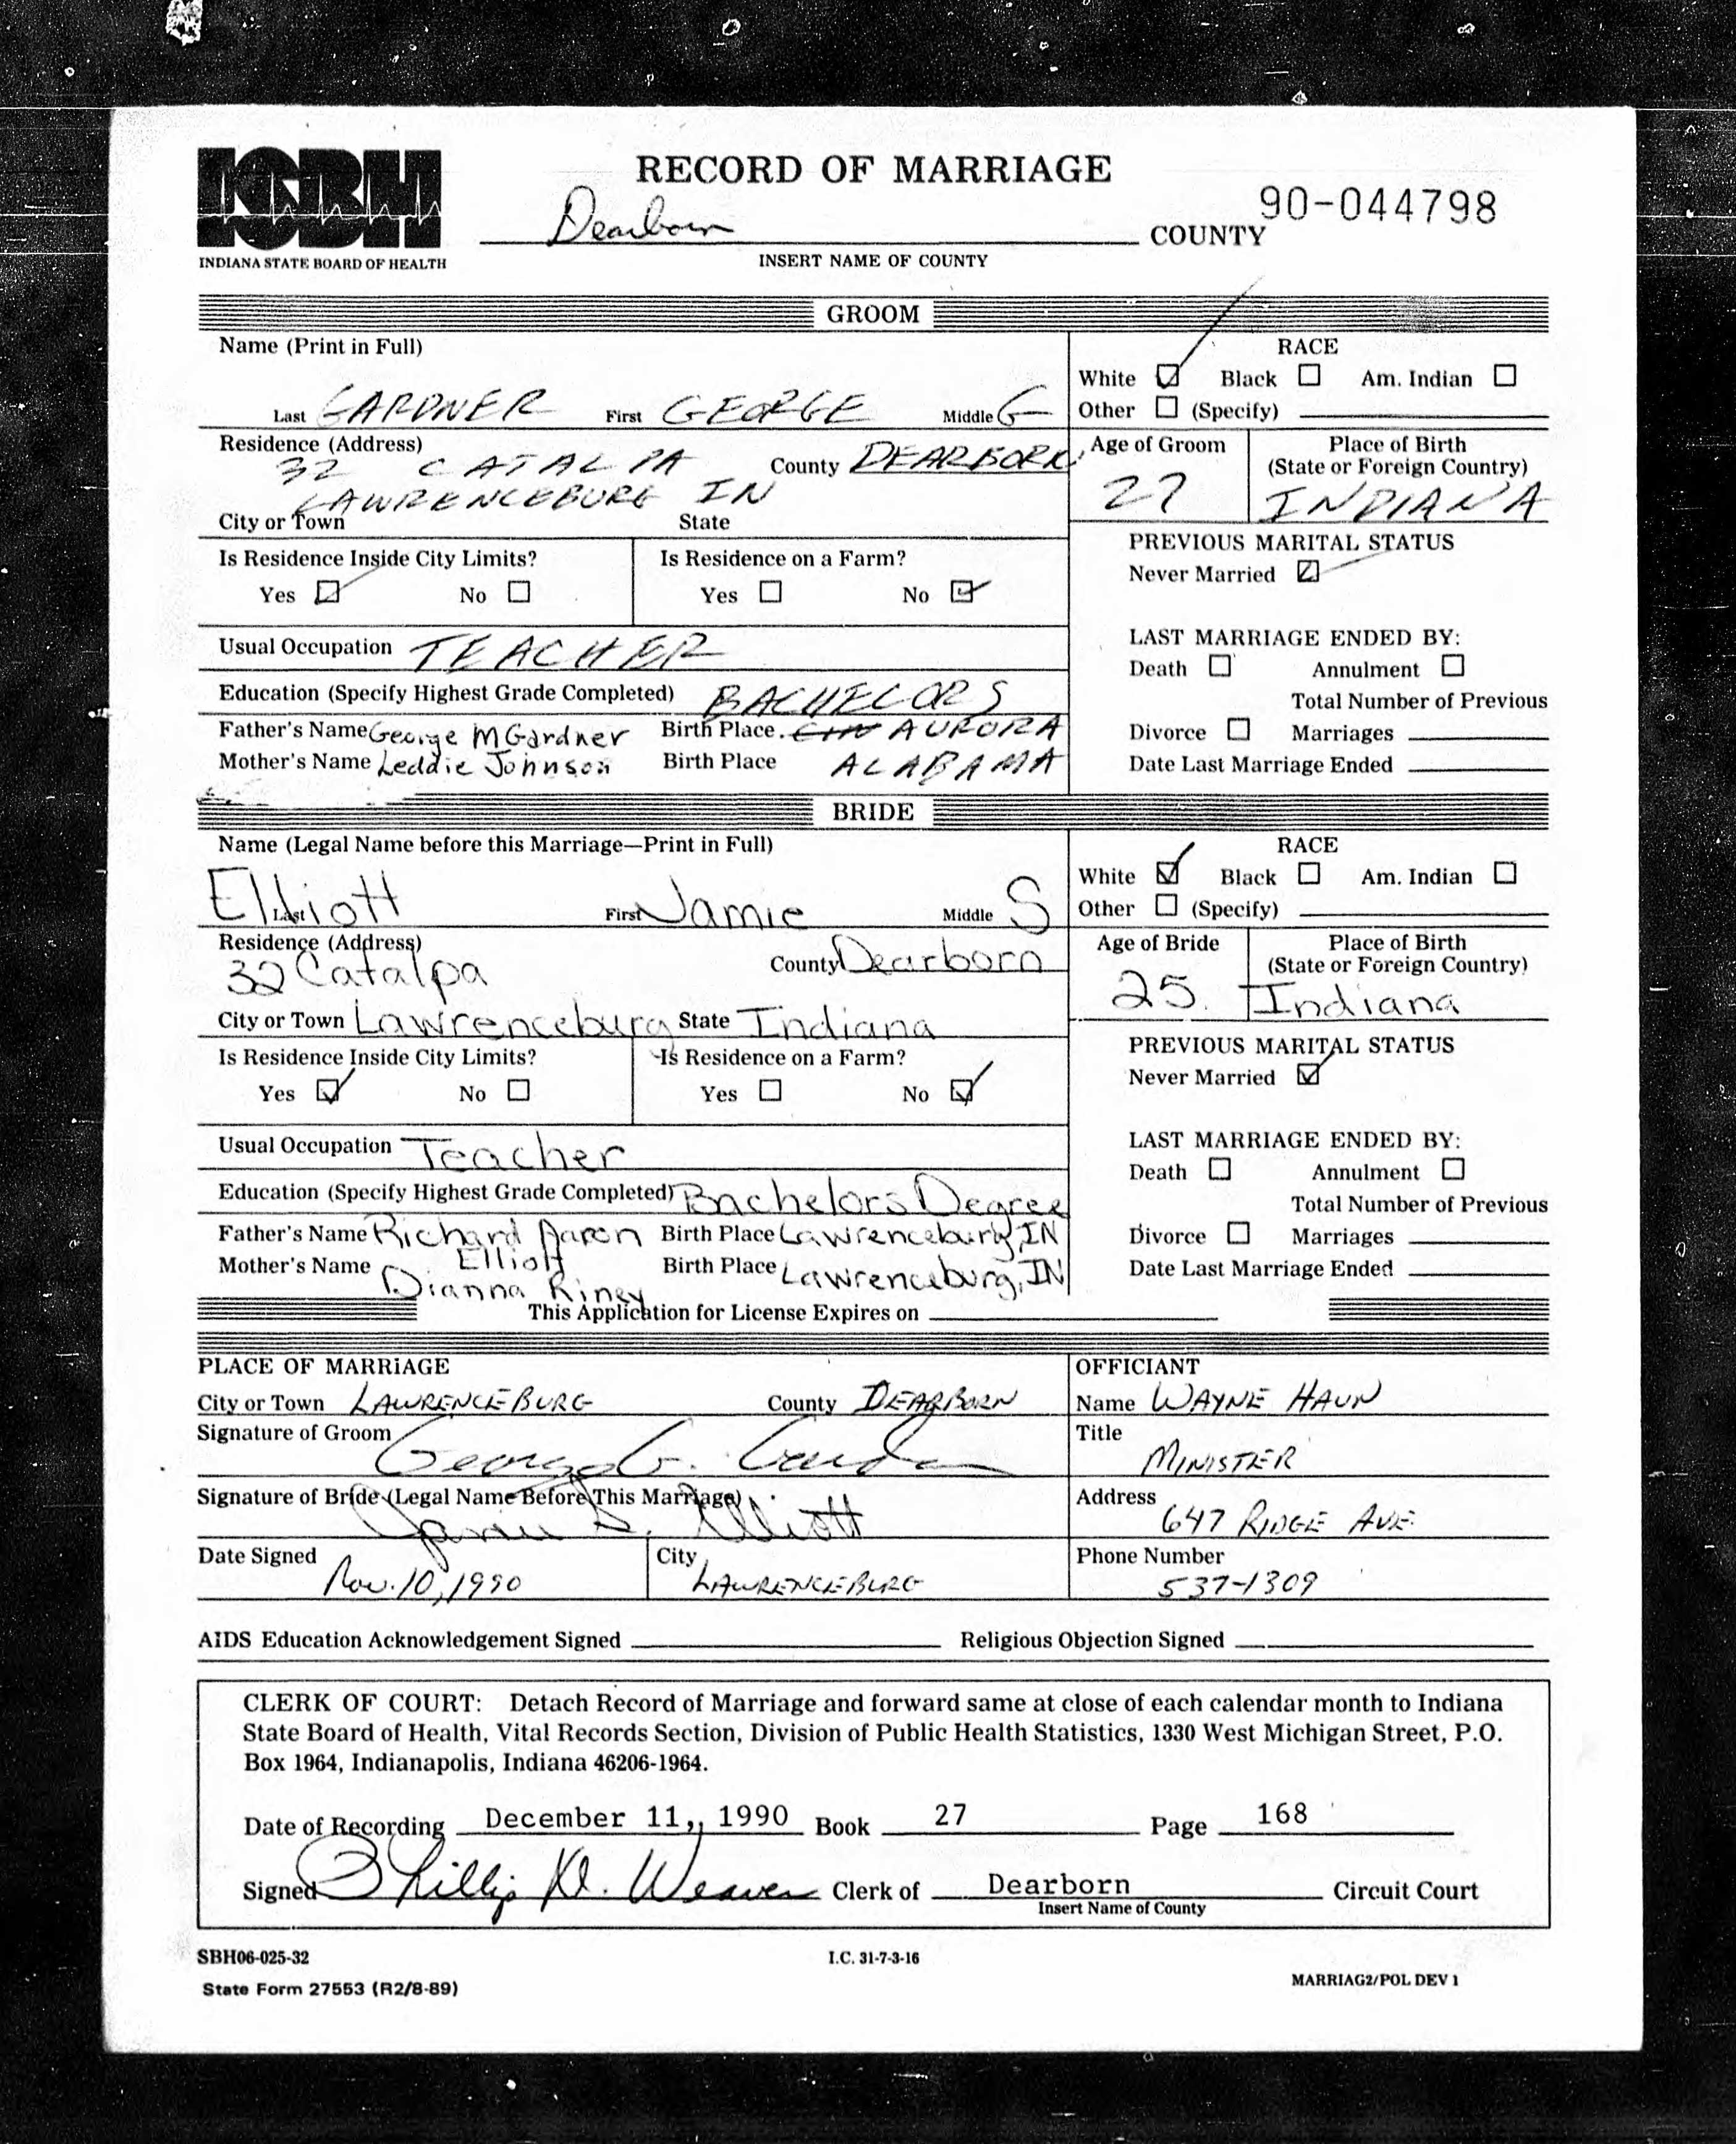 ISBH
INDIANA STATE BOARD OF HEALTH
RECORD OF MARRIAGE
90-044798
Dearborn COUNTY
INSERT NAME OF COUNTY
GROOM
Name (Print in Full)
Last GARDNER First GEORGE Middle G
RACE
White ☑ Black ☐ Am. Indian ☐
Other ☐ (Specify)
Residence (Address) 32 CATALPA County DEARBORN
LAWRENCEBURG IN
City or Town State
Age of Groom 27
Place of Birth
(State or Foreign Country)
INDIANA
Is Residence Inside City Limits?
Yes ☑ No ☐
Is Residence on a Farm?
Yes ☐ No ☑
PREVIOUS MARITAL STATUS
Never Married ☑
Usual Occupation TEACHER
Education (Specify Highest Grade Completed) BACHELORS
Father's Name George M Gardner Birth Place AURORA
Mother's Name Leddie Johnson Birth Place ALABAMA
LAST MARRIAGE ENDED BY:
Death ☐ Annulment ☐
Total Number of Previous
Divorce ☐ Marriages
Date Last Marriage Ended
BRIDE
Name (Legal Name before this Marriage—Print in Full)
Last Elliott First Jamie Middle S
RACE
White ☑ Black ☐ Am. Indian ☐
Other ☐ (Specify)
Residence (Address) 32 Catalpa County Dearborn
City or Town Lawrenceburg State Indiana
Age of Bride 25
Place of Birth
(State or Foreign Country)
Indiana
Is Residence Inside City Limits?
Yes ☑ No ☐
Is Residence on a Farm?
Yes ☐ No ☑
PREVIOUS MARITAL STATUS
Never Married ☑
Usual Occupation Teacher
Education (Specify Highest Grade Completed) Bachelors Degree
Father's Name Richard Aaron Elliott Birth Place Lawrenceburg, IN
Mother's Name Dianna Riney Birth Place Lawrenceburg, IN
LAST MARRIAGE ENDED BY:
Death ☐ Annulment ☐
Total Number of Previous
Divorce ☐ Marriages
Date Last Marriage Ended
This Application for License Expires on
PLACE OF MARRIAGE
City or Town LAWRENCEBURG County DEARBORN
Signature of Groom George G. Gardner
Signature of Bride (Legal Name Before This Marriage) Jamie S. Elliott
Date Signed Nov. 10, 1990 City LAWRENCEBURG
OFFICIANT
Name WAYNE HAUN
Title MINISTER
Address 647 RIDGE AVE.
Phone Number 537-1309
AIDS Education Acknowledgement Signed Religious Objection Signed
CLERK OF COURT: Detach Record of Marriage and forward same at close of each calendar month to Indiana
State Board of Health, Vital Records Section, Division of Public Health Statistics, 1330 West Michigan Street, P.O.
Box 1964, Indianapolis, Indiana 46206-1964.
Date of Recording December 11,, 1990 Book 27 Page 168
Signed Phillip D. Weaver Clerk of Dearborn Circuit Court
Insert Name of County
SBH06-025-32 I.C. 31-7-3-16
State Form 27553 (R2/8-89) MARRIAG2/POL DEV 1